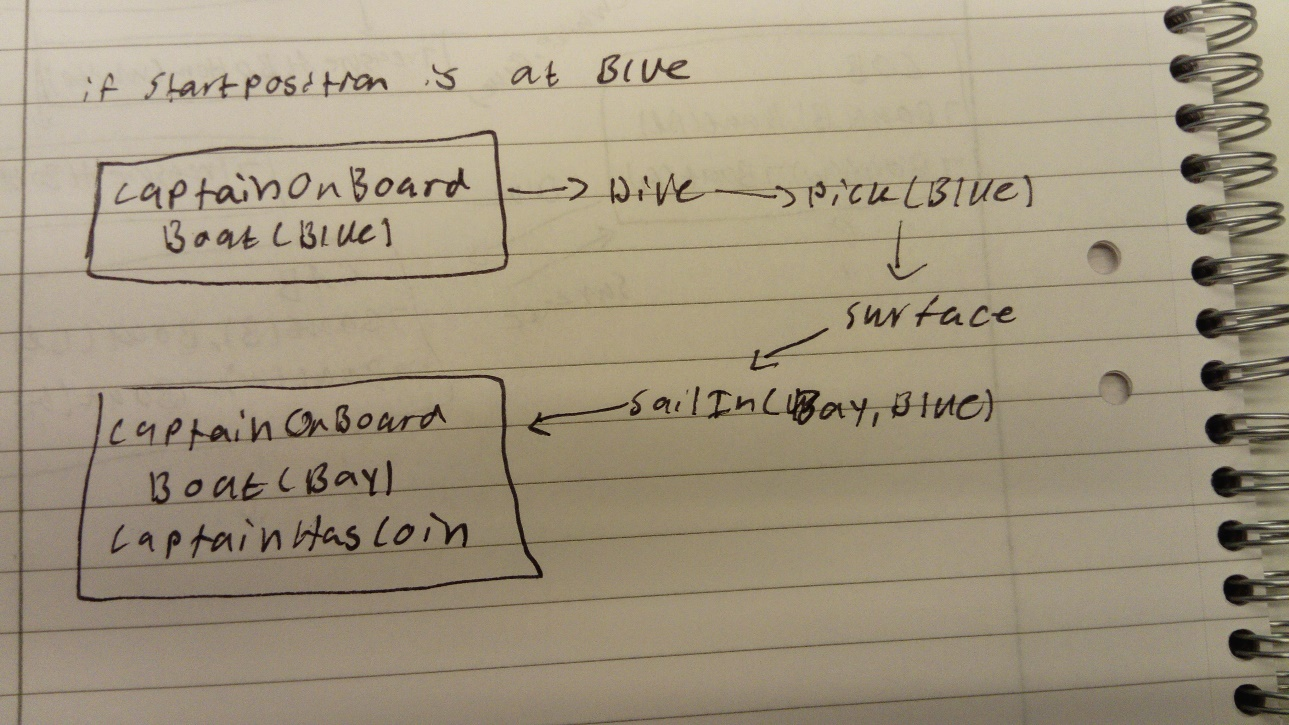 if startposition is at Blue
CaptainOnBoard
Boat(Blue)
Dive
Pick(Blue)
surface
SailIn(Bay, Blue)
CaptainOnBoard
Boat(Bay)
CaptainHasCoin